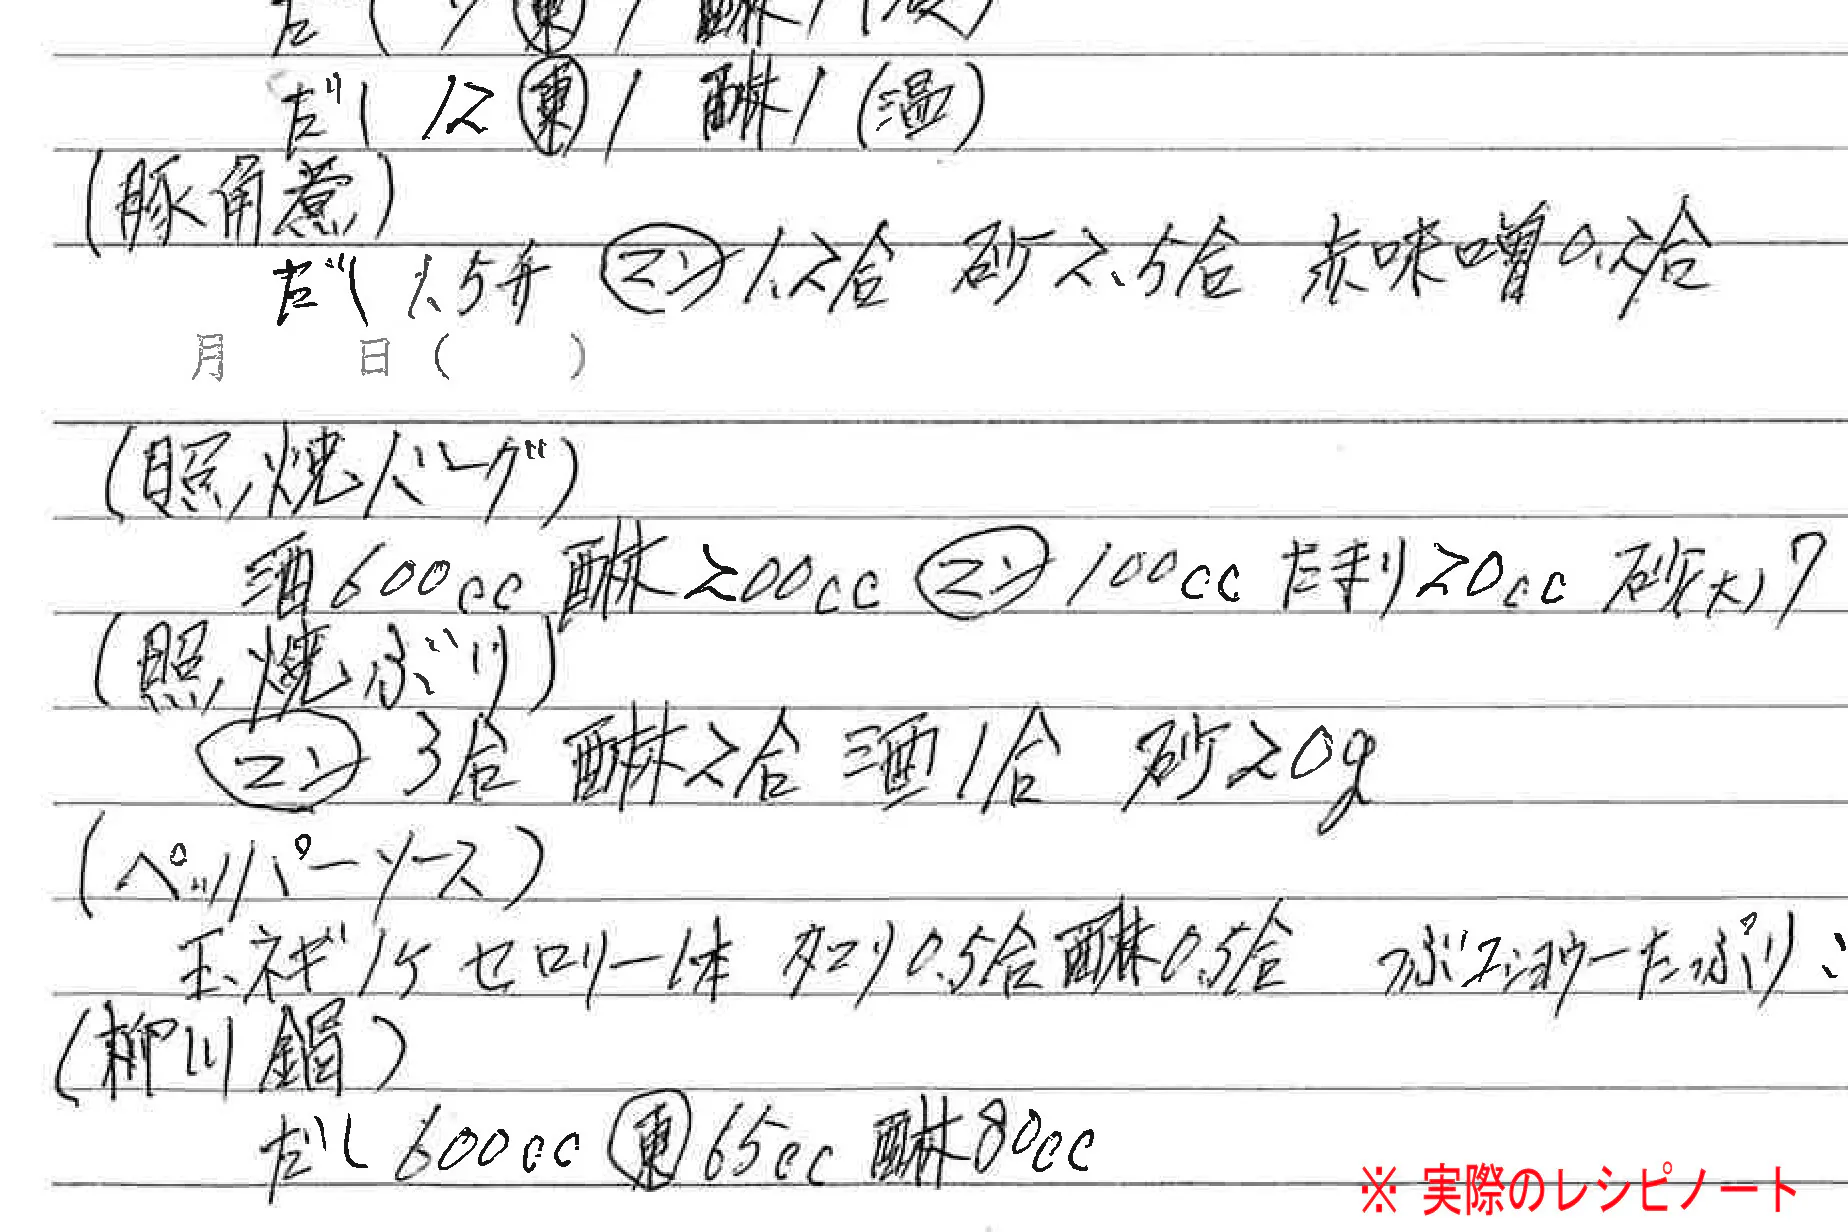 だし 12 ㊤東 1 醂 1 (温)
(豚角煮)
だし 1.5升 マン 1.2合 砂 2.5合 赤味噌 0.2合
月 日( )
(照焼バーグ)
酒 600cc 醂 200cc マン 100cc たまり 20cc 砂 大 7
(照焼ぶり)
マン 3合 醂 2合 酒 1合 砂 20g
(ペッパーソース)
玉ネギ 1ケ セロリー 1本 タマリ 0.5合 醂 0.5合 つぶコショウーたっぷり
(柳川鍋)
だし 600cc 東 65cc 醂 80cc
※ 実際のレシピノート